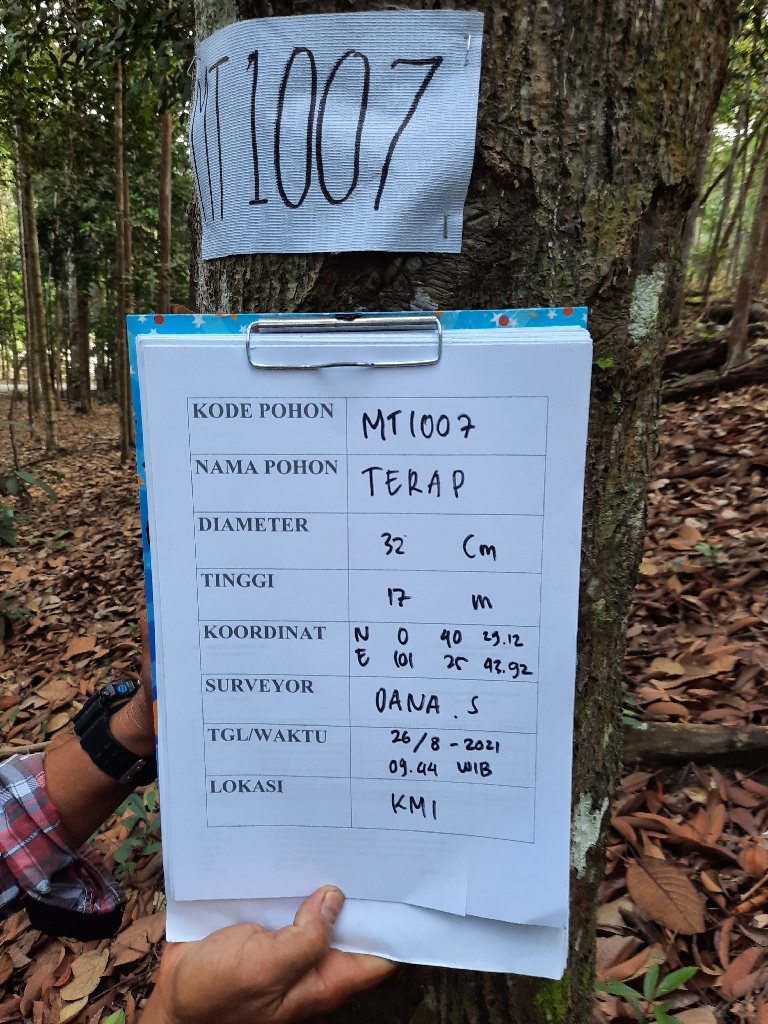 MT1007
KODE POHON MT1007
NAMA POHON TERAP
DIAMETER 32 Cm
TINGGI 17 m
KOORDINAT N 0 40 29.12
E 101 25 43.92
SURVEYOR DANA . S
TGL/WAKTU 26/8 - 2021
09.44 WIB
LOKASI KMI